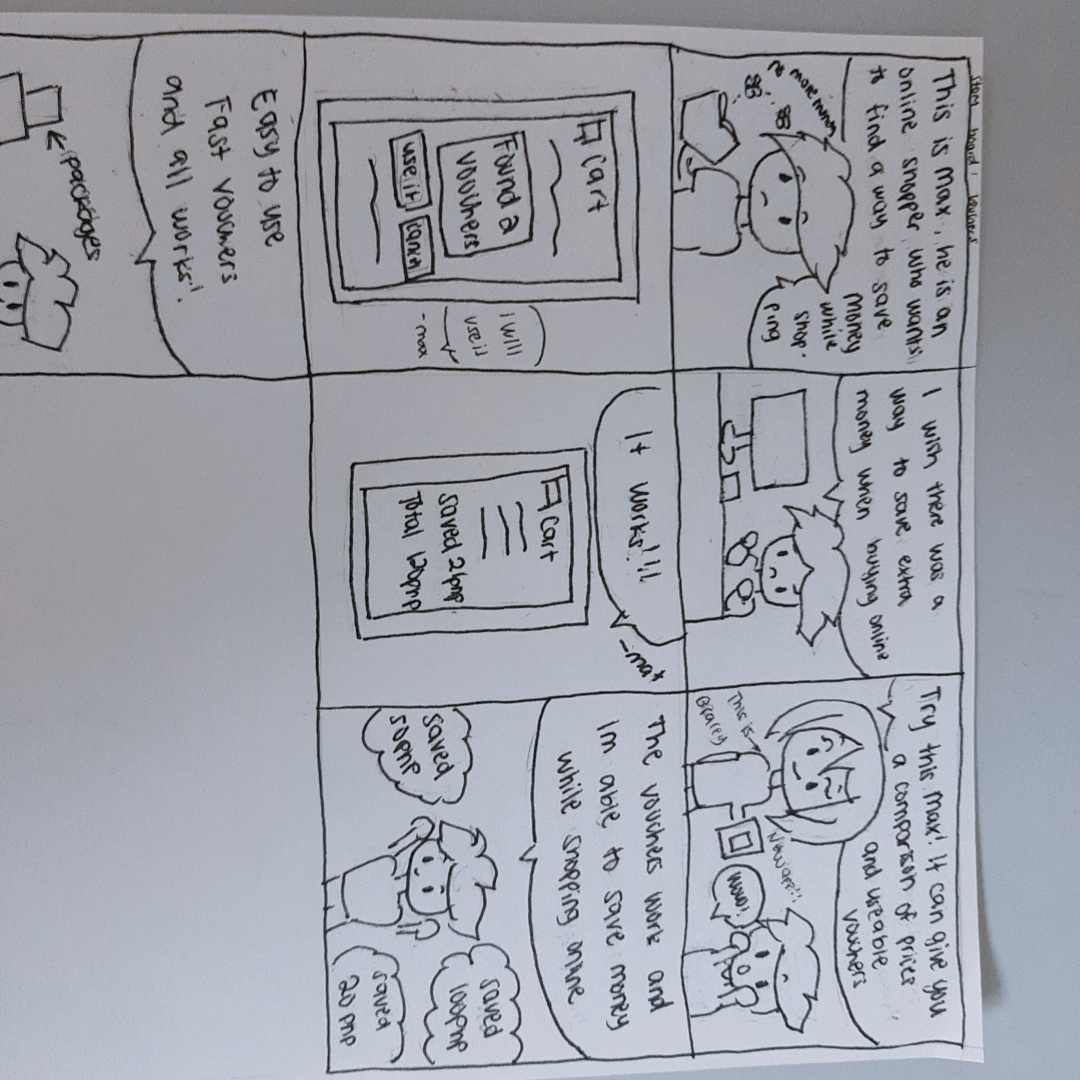 Story board: vouchers
This is max, he is an
online shopper who wants
to find a way to save
money
while
shop-
ping
no more money
I wish there was a
way to save extra
money when buying online
Try this max! It can give you
a comparison of prices
and useable
vouchers
This is
New app!!
wow!
cart
Found 2
vouchers
use it
cancel
i will
use it
-max
It works!!!
-max
cart
saved 21php
Total 120php
The vouchers work and
Im able to save money
while shopping online
saved
50php
saved
100php
saved
20 php
Easy to use
Fast vouchers
and all works!
packages